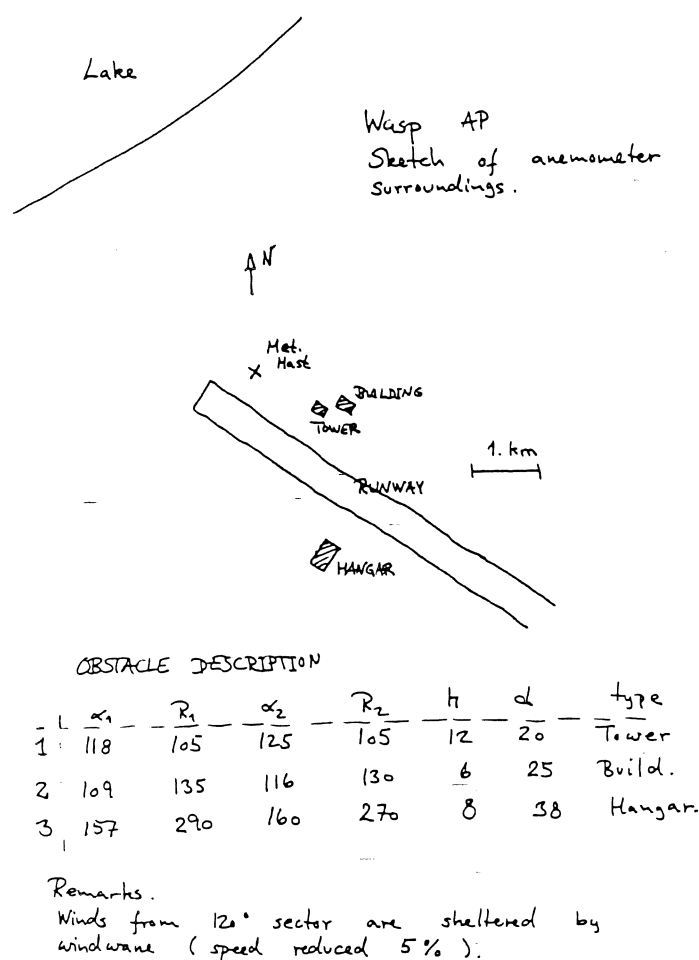 Lake
Wasp AP
Sketch of anemometer
surroundings.
N
Met.
Mast
BUALDING
TOWER
1. km
RUNWAY
HANGAR
OBSTACLE DESCRIPTION
α1 R1 α2 R2 h d type
1 118 105 125 105 12 20 Tower
2 109 135 116 130 6 25 Build.
3 157 290 160 270 8 38 Hangar.
Remarks.
Winds from 120° sector are sheltered by
windwane (speed reduced 5% ).